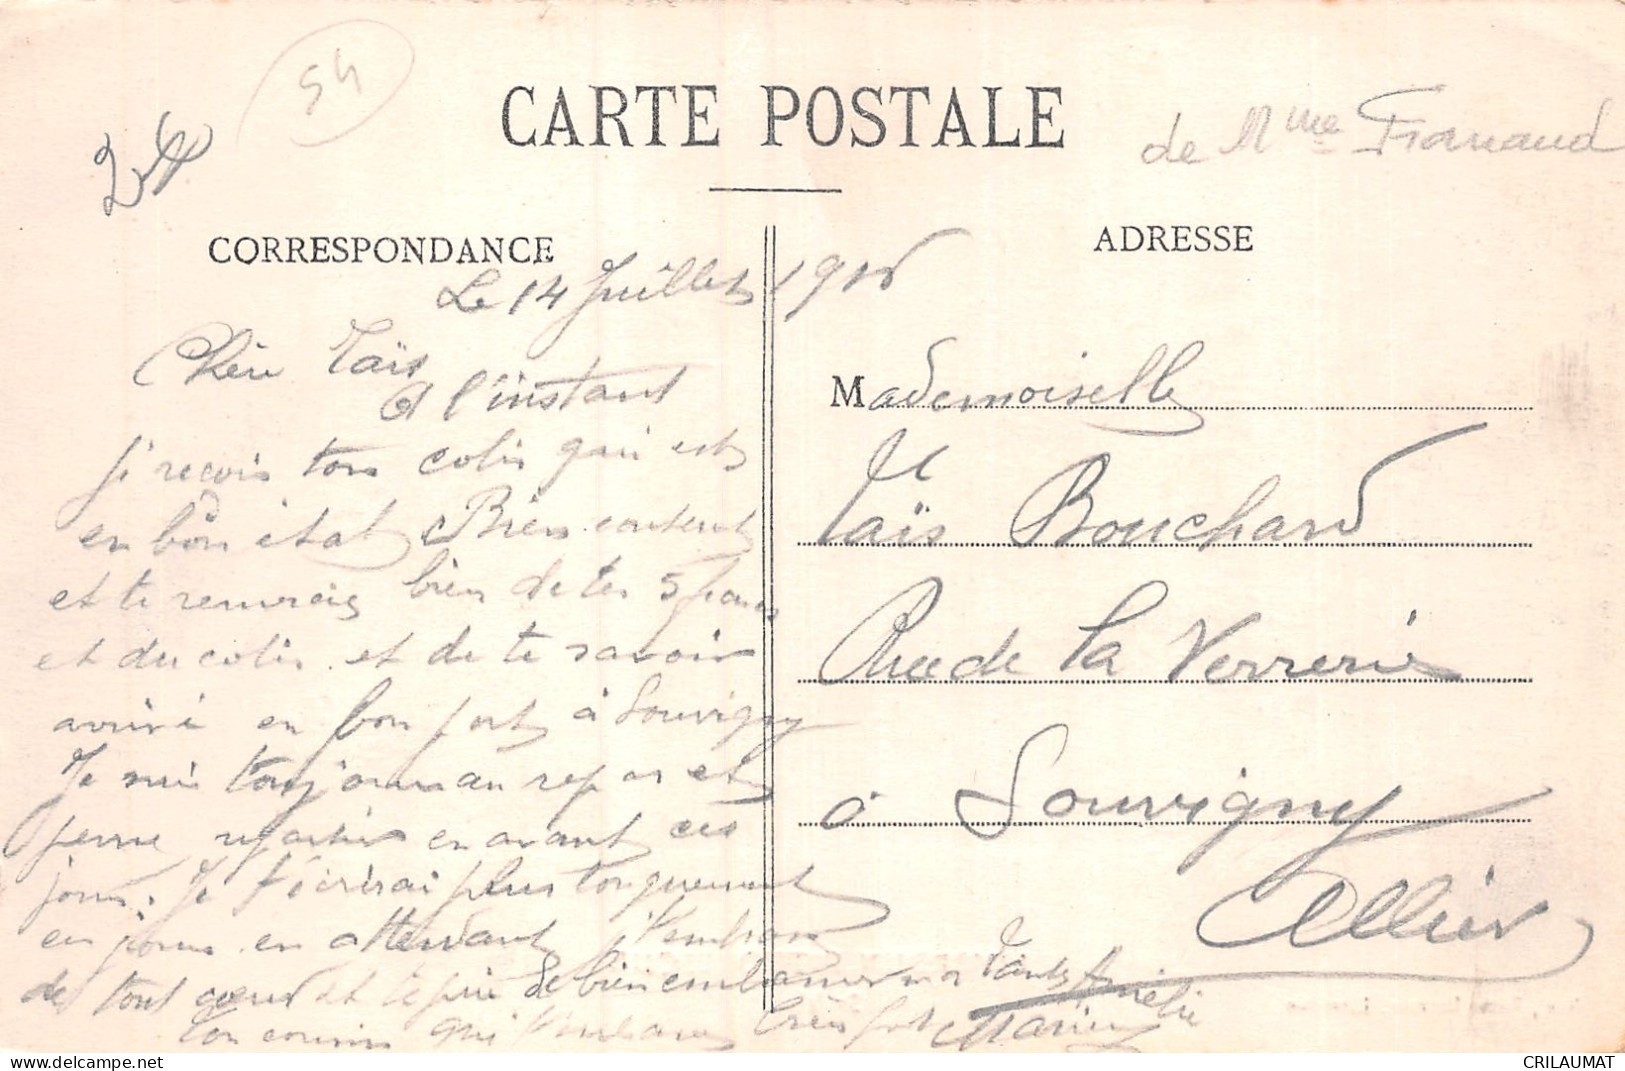 54
CARTE POSTALE
de Mme
CORRESPONDANCE
ADRESSE
Le 14 Juillet 1916
Chère Taïs
A l'instant
Je recois ton colis qui est
en bon état Bien content
et te remercie bien de tes 5 francs
et du colis et de te savoir
arrivé en bon port à Souvigny
Je suis toujours au repos et
pense repartir en avant ces
jours. Je t'écrirai plus longuement
en jours en attendant t'embrasse
de tout cœur et te prie de bien embrasser ma Tante Amélie
Ton cousin qui t'embrasse très fort
Mademoiselle
Taïs Bouchard
Rue de la Verrerie
à Souvigny
Allier
CRILAUMAT